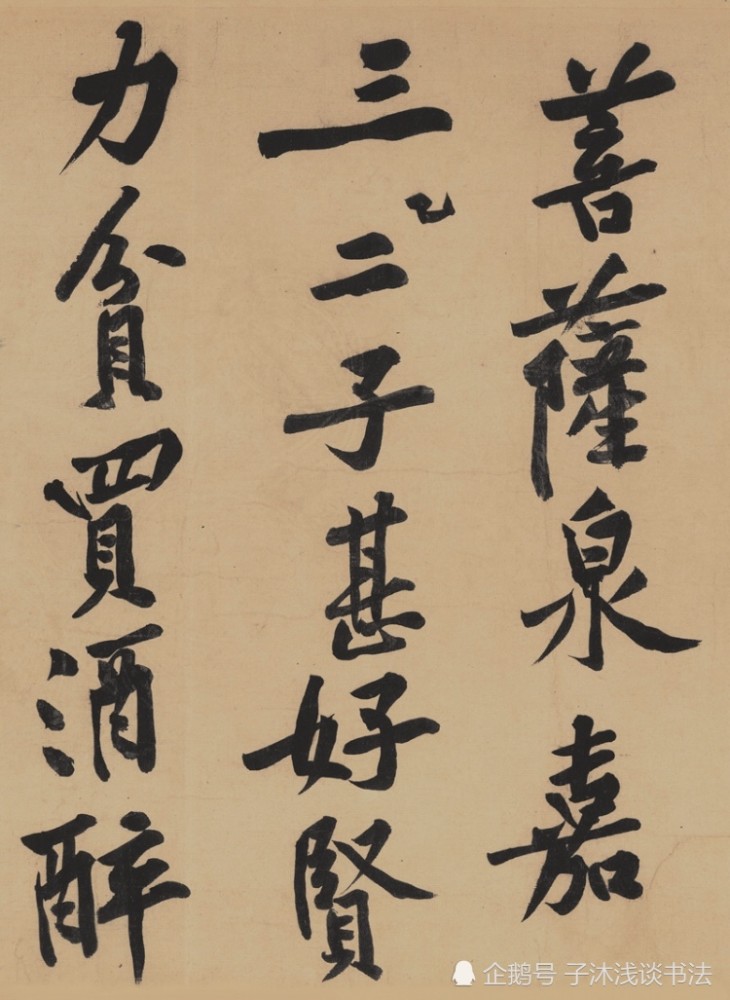 菩薩泉嘉
三二子甚好賢
力貧買酒醉
企鹅号 子沐浅谈书法